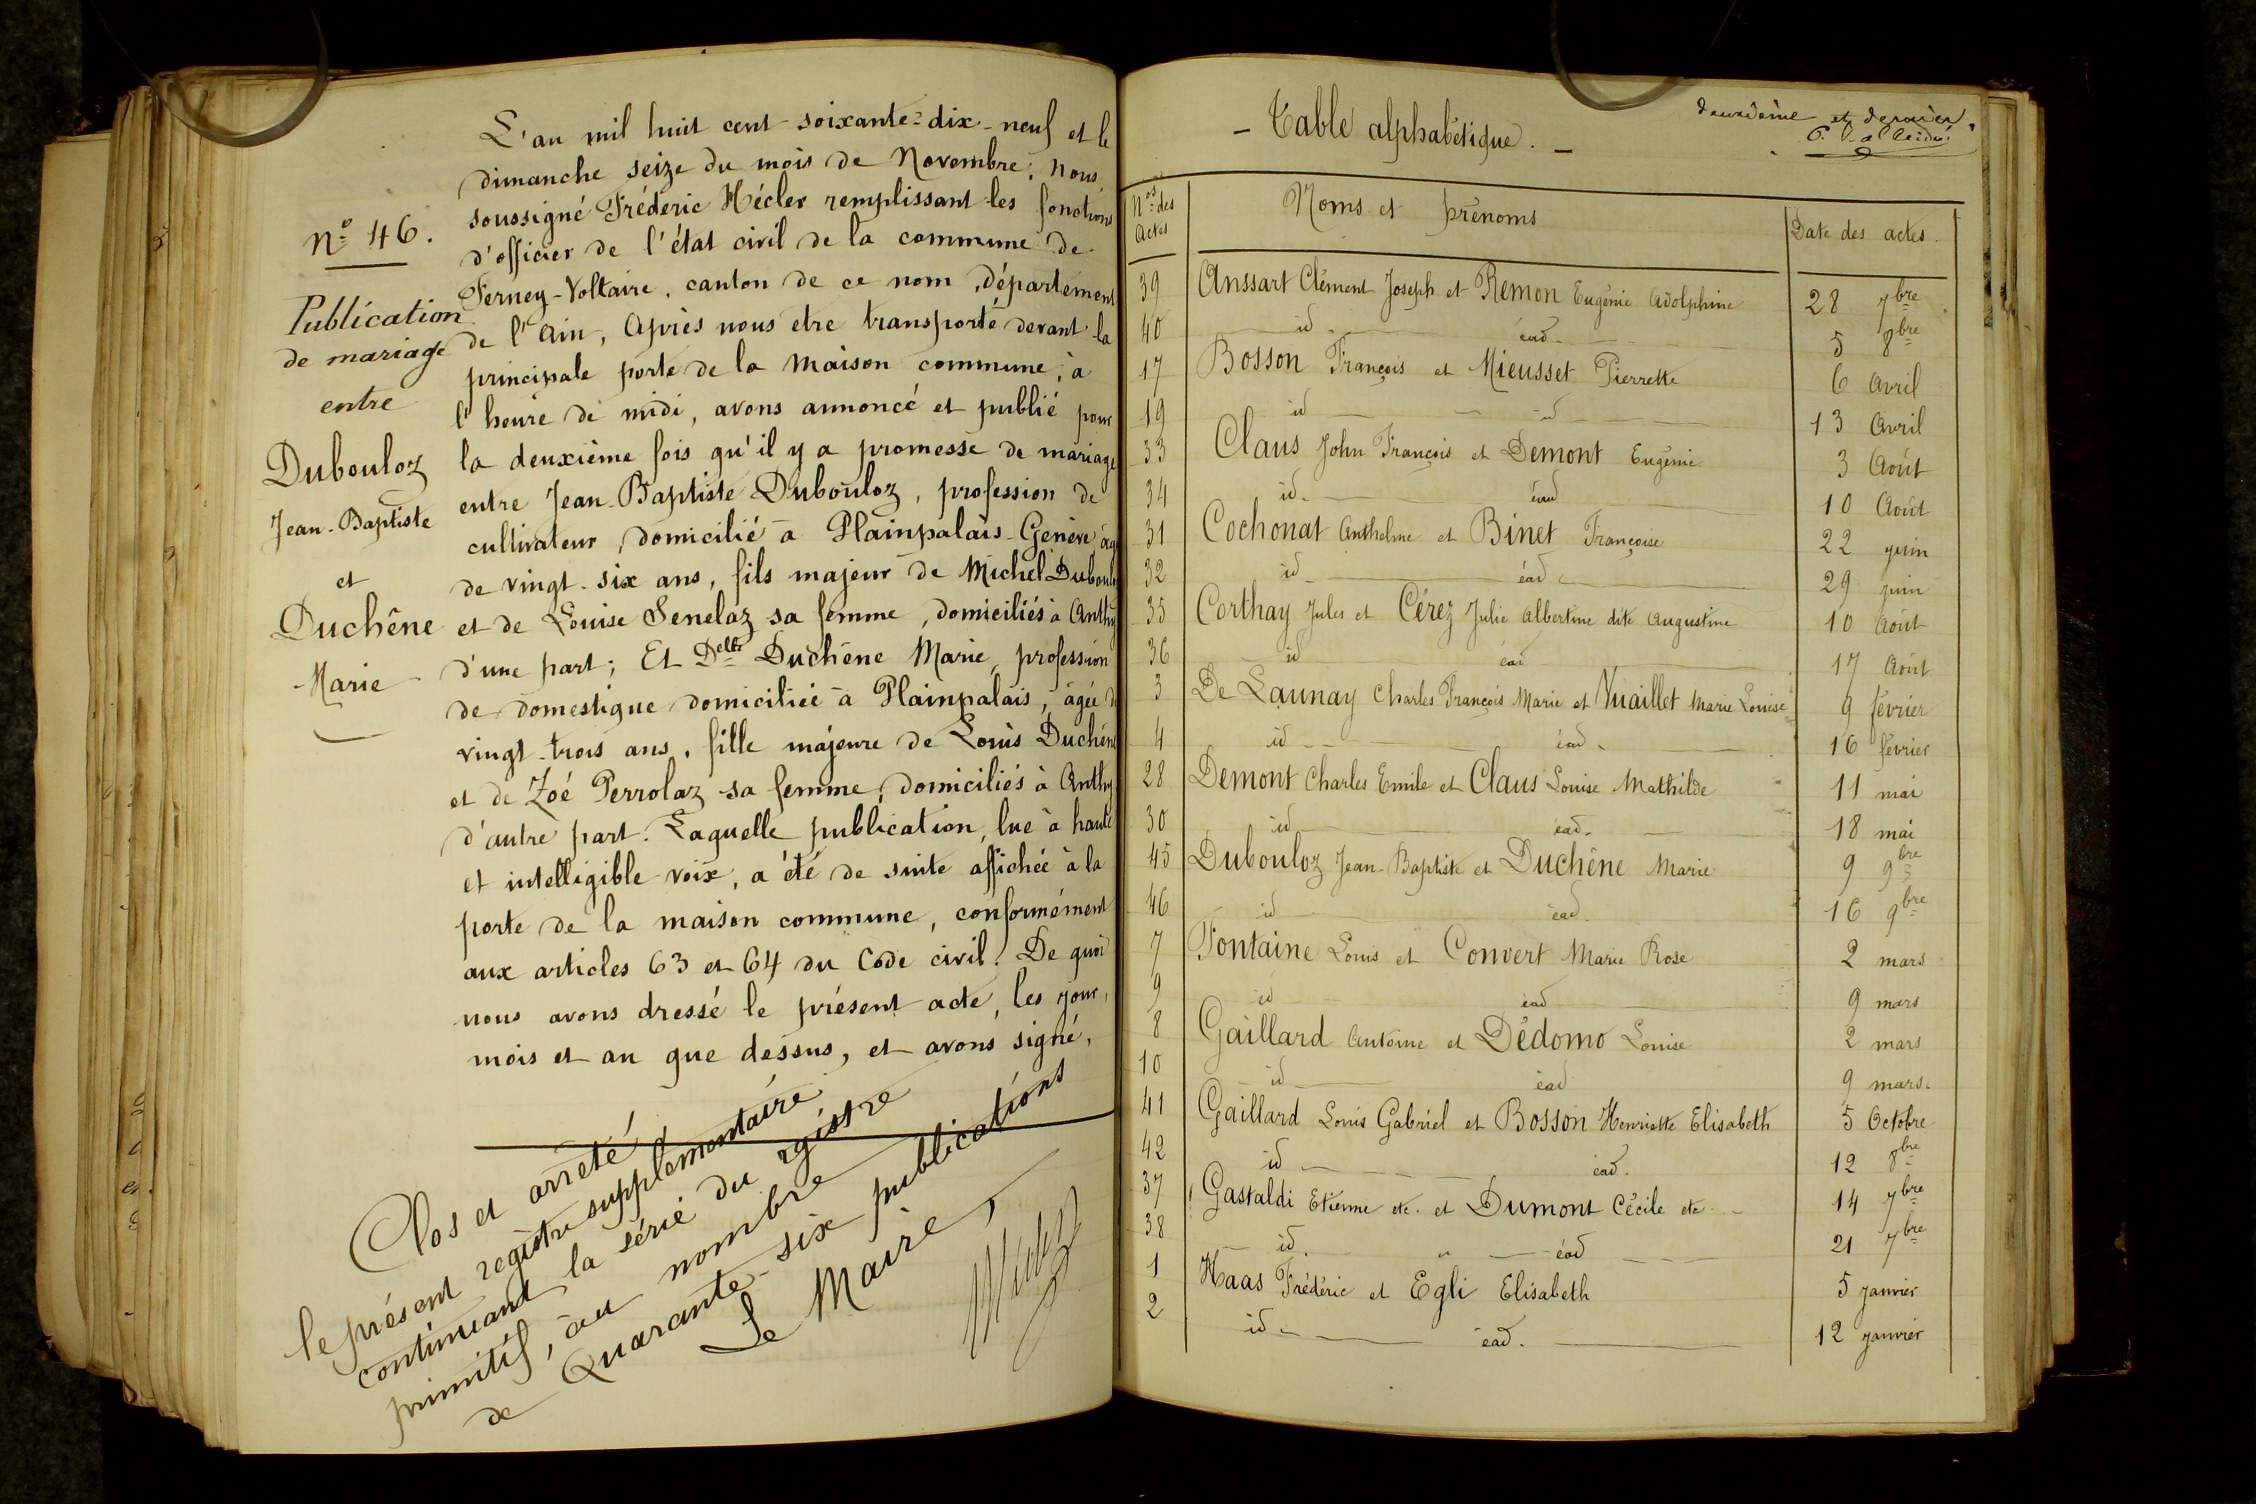 L'an mil huit cent soixante-dix-neuf et le
dimanche seize du mois de Novembre; nous
soussigné Frédéric Hécler remplissant les fonctions
d'officier de l'état civil de la commune de
Ferney-Voltaire, canton de ce nom, département
de l'ain, Après nous être transporté devant la
principale porte de la maison commune, à
l'heure de midi, avons annoncé et publié pour
la deuxième fois qu'il y a promesse de mariage
entre Jean-Baptiste Dubouloz, profession de
cultivateur, domicilié à Plainpalais-Genève âgé
de vingt-six ans, fils majeur de Michel Dubouloz
et de Louise Senelaz sa femme, domiciliés à Anthy
d'une part; Et Delle Duchêne Marie, profession
de domestique domiciliée à Plainpalais, âgée de
vingt-trois ans, fille majeure de Louis Duchêne
et de Zoé Perrolaz sa femme, domiciliés à Anthy
d'autre part. Laquelle publication, lue à haute
et intelligible voix, a été de suite affichée à la
porte de la maison commune, conformément
aux articles 63 et 64 du Code civil. De quoi
nous avons dressé le présent acte, les jour,
mois et an que dessus, et avons signé,
N° 46.
Publication
de mariage
entre
Dubouloz
Jean-Baptiste
et
Duchêne
Marie
Clos et arrêté
le présent registre supplémentaire
continuant la série du rgistre
primitif, au nombre
de Quarante-six publications
Le Maire,
- Table alphabétique. -
deuxième et dernier
Nos des Actes Noms et prénoms Date des actes.
39 Anssart Clément Joseph et Remon Eugénie Adolphine 28 7bre
40 id éad. 5 8bre
17 Bosson François et Mieusset Pierrette 6 Avril
19 id id 13 Avril
33 Claus John François et Demont Eugénie 3 Août
34 id. éad 10 Août
31 Cochonat Anthelme et Binet Françoise 22 juin
32 id éad 29 juin
35 Corthay Jules et Cérez Julie Albertine dite Augustine 10 Août
36 id éad 17 Août
3 De Launay Charles François Marie et Vuaillet Marie Louise 9 février
4 id éad. 16 février
28 Demont Charles Emile et Claus Louise Mathilde 11 mai
30 id éad. 18 mai
45 Dubouloz Jean-Baptiste et Duchêne Marie 9 9bre
46 id éad. 16 9bre
7 Fontaine Louis et Convert Marie Rose 2 mars
9 id éad 9 mars
8 Gaillard Antoine et Dédomo Louise 2 mars
10 id éad 9 mars.
41 Gaillard Louis Gabriel et Bosson Henriette Elisabeth 5 Octobre
42 id éad. 12 8bre
37 Gastaldi Etienne etc. et Dumont Cécile etc 14 7bre
38 id. éad 21 7bre
1 Haas Frédéric et Egli Elisabeth 5 janvier
2 id éad. 12 janvier